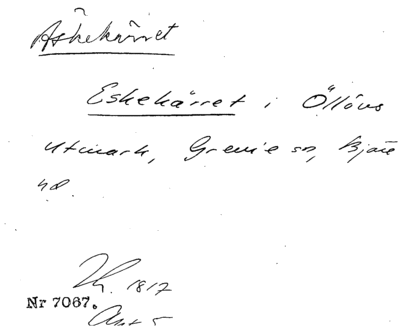 Äskekärret
Eskekärret i Öllövs
utmark, Grevie sn, Bjäre
hd.
1817
Nr 7067.
Akt 5